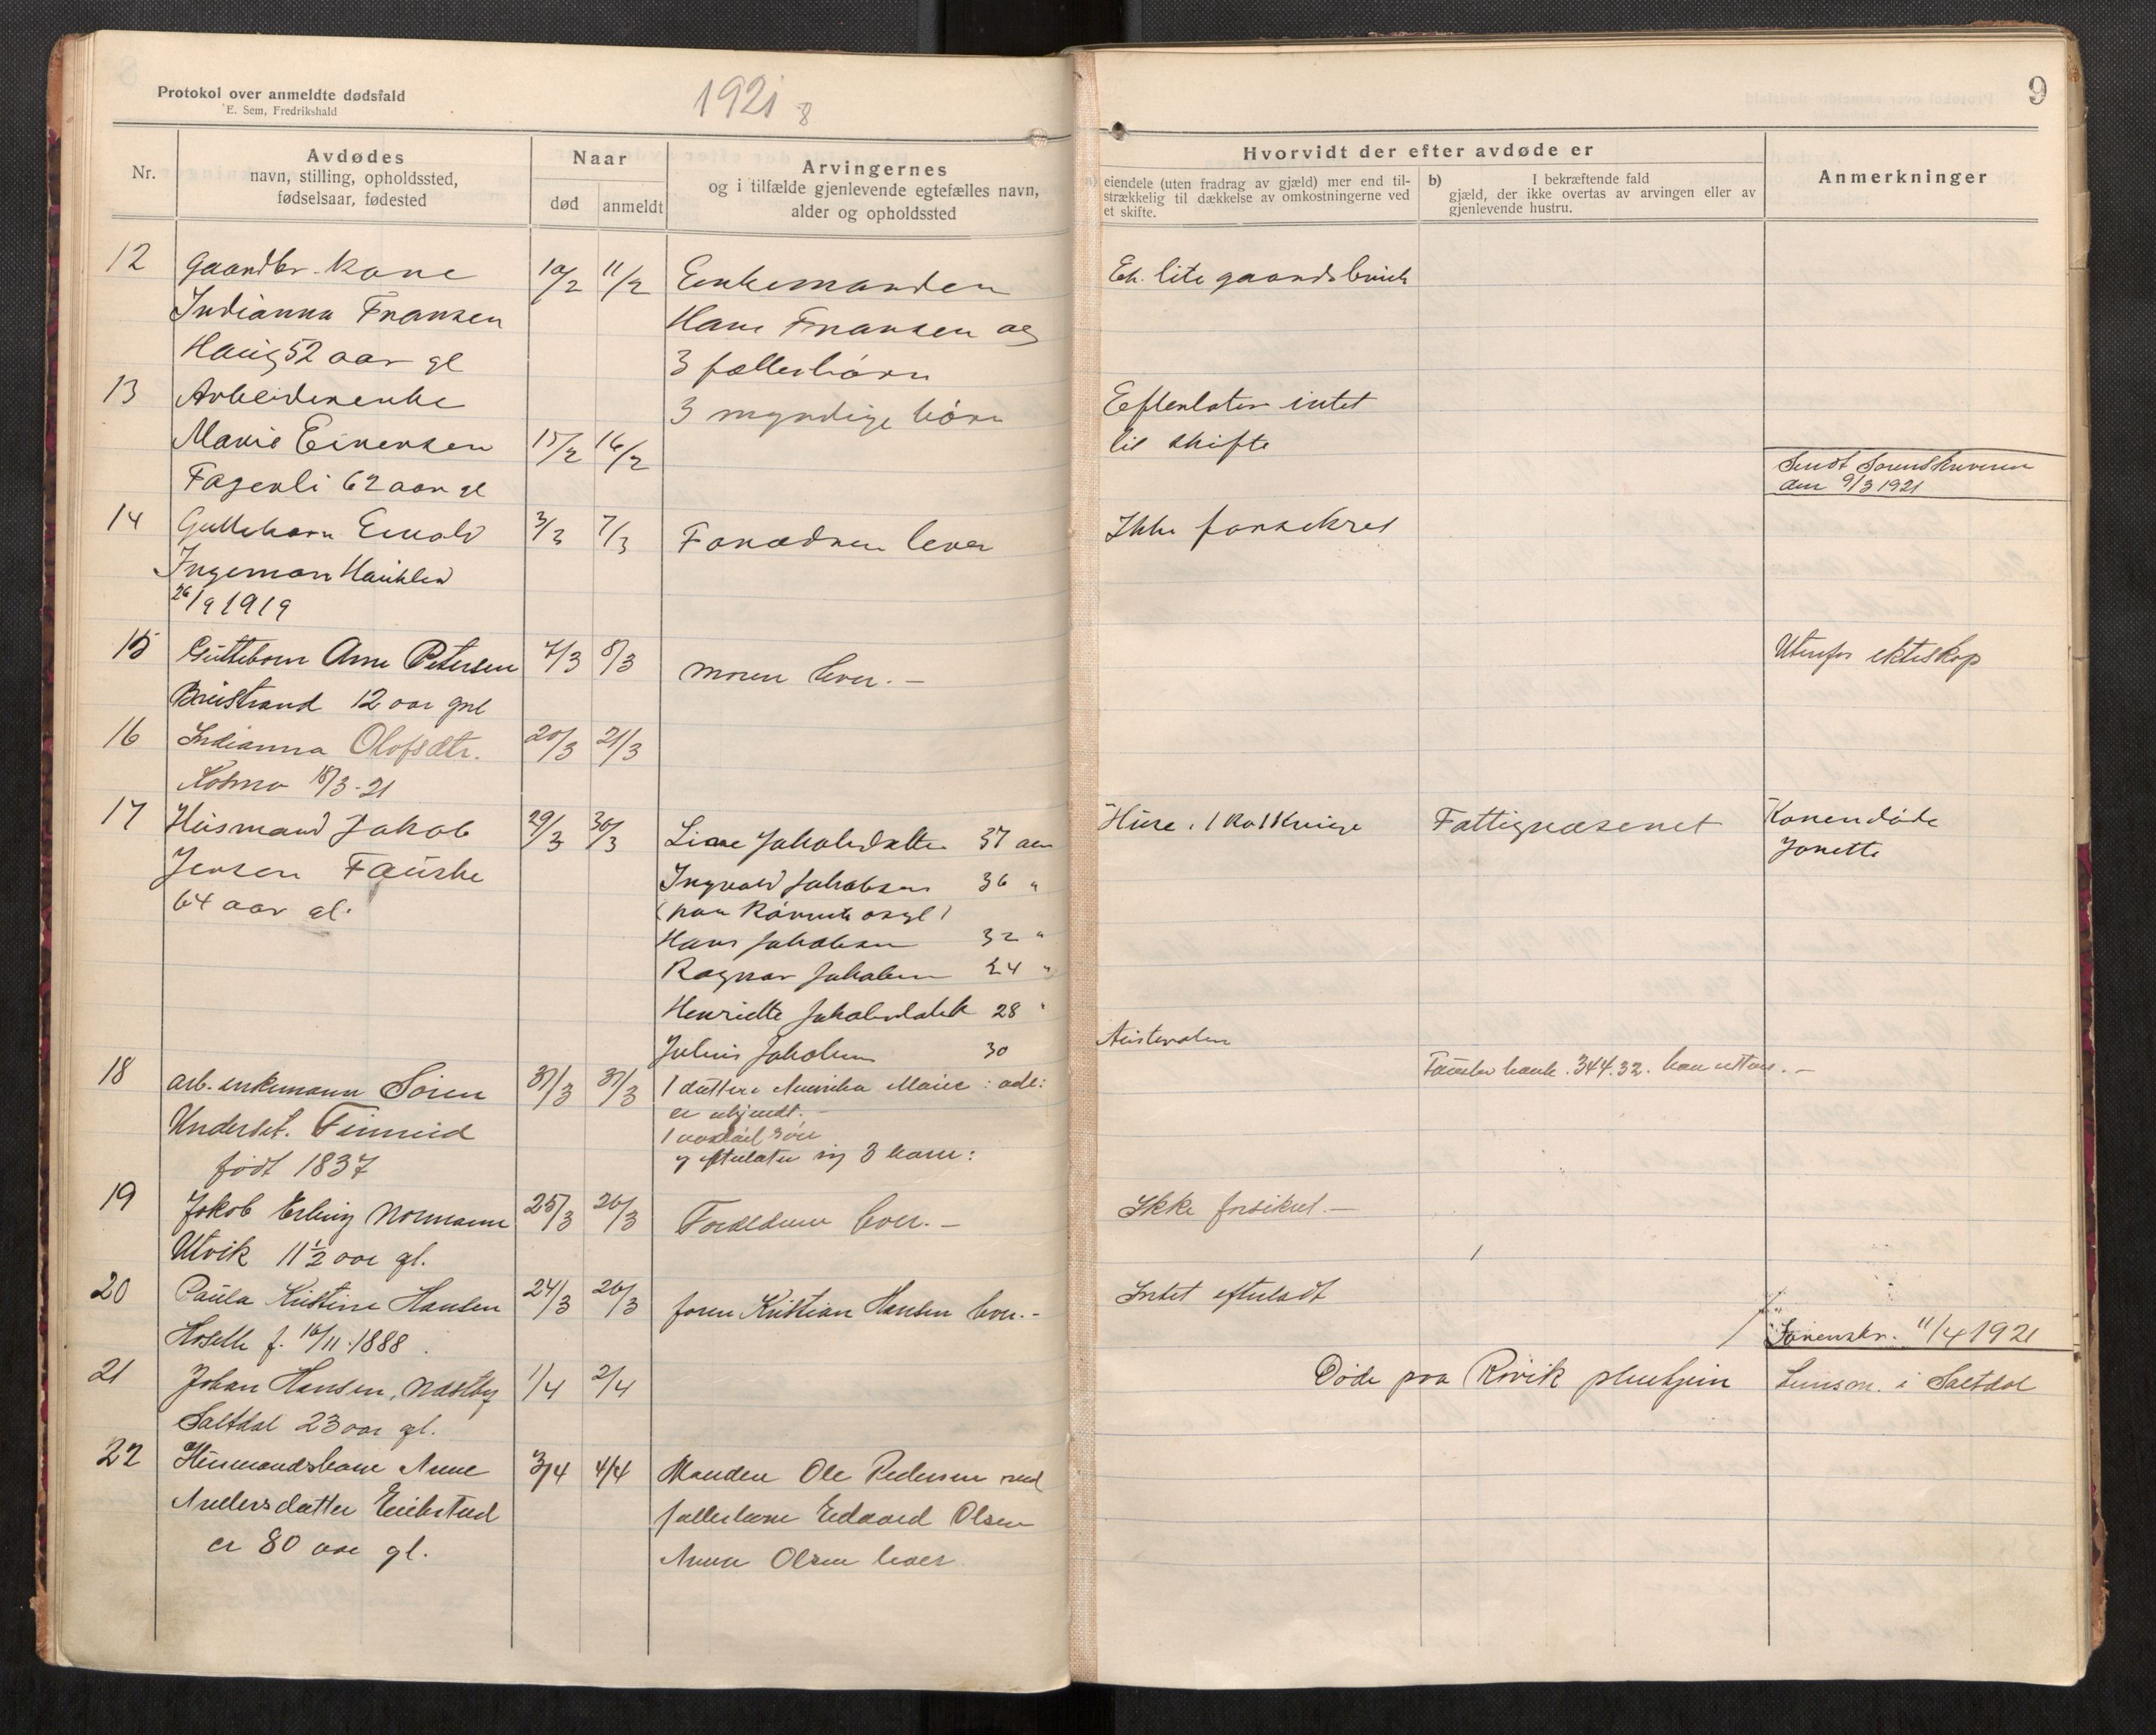 Protokol over anmeldte dødsfald
E. Sem, Fredrikshald
1921
8
9
Nr.
Avdødes
navn, stilling, opholdssted,
fødselsaar, fødested
Naar
død
anmeldt
Arvingernes
og i tilfælde gjenlevende egtefælles navn,
alder og opholdssted
Hvorvidt der efter avdøde er
a) eiendele (uten fradrag av gjæld) mer end til-
strækkelig til dækkelse av omkostningerne ved
et skifte.
b) I bekræftende fald
gjæld, der ikke overtas av arvingen eller av
gjenlevende hustru.
Anmerkninger
12 Gaardbr. kone 10/2 11/2 Enkemanden Et lite gaardsbruk
Indianna Fransen Hans Fransen og
Haug 52 aar gl 3 fællesbørn
13 Arbeiderenke 3 myndige børn Efterlater intet
Marie Einersen 15/2 16/2 til skifte
Fagerli 62 aar gl
Sendt Sorenskriveren
den 9/3 1921
14 Guttebarn Eivald 3/3 7/3 Forædren lever Ikke forsikret
Ingeman
26/9 1919
15 Guttebarn Arne Petersen 7/3 8/3 moren lever. – Utenfor ekteskap
12 aar gml
16 Indianna Olofsdtr. 20/3 21/3
Kosmo 18/3-21
17 Husmand Jakob 29/3 30/3 Line Jakobsdatter 37 aar Huse, 1 Ko 1 Kvige Fattigvæsenet Konen døde
Jensen Fauske Ingvald Jakobsen 36 " Jonette
64 aar gl. (paa Rønvik asyl)
Hans Jakobsen 32 "
Ragnar Jakobsen 24 "
Henriette Jakobsdatter 28 "
Julius Jakobsen 30
18 arb. enkemann Søren 31/3 31/3 1 datter Annika Marie
Underset. Finneid er ukjendt. –
født 1837 og efterlater sig 3 barn:
Fauske bank. 344.32.
19 Jakob Erling Normann 25/3 26/3 Forældrene lever. – Ikke forsikret. –
Utvik 11½ aar gl.
20 Paula Kristine Hansen 24/3 26/3 faren Kristian Hansen lever. – Intet efterladt
f. 16/11-1888.
Sorenskr. 11/4 1921
21 Johan Hansen, Næstby 1/4 2/4 Døde paa Røvik pleiehjem Lensm. i Saltdal
Saltdal 23 aar gl.
22 Husmandskone Anne 3/4 4/4 Manden Ole Pedersen med
Andersdatter fællesbarn Edvard Olsen
er 80 aar gl. Anna Olsen lever